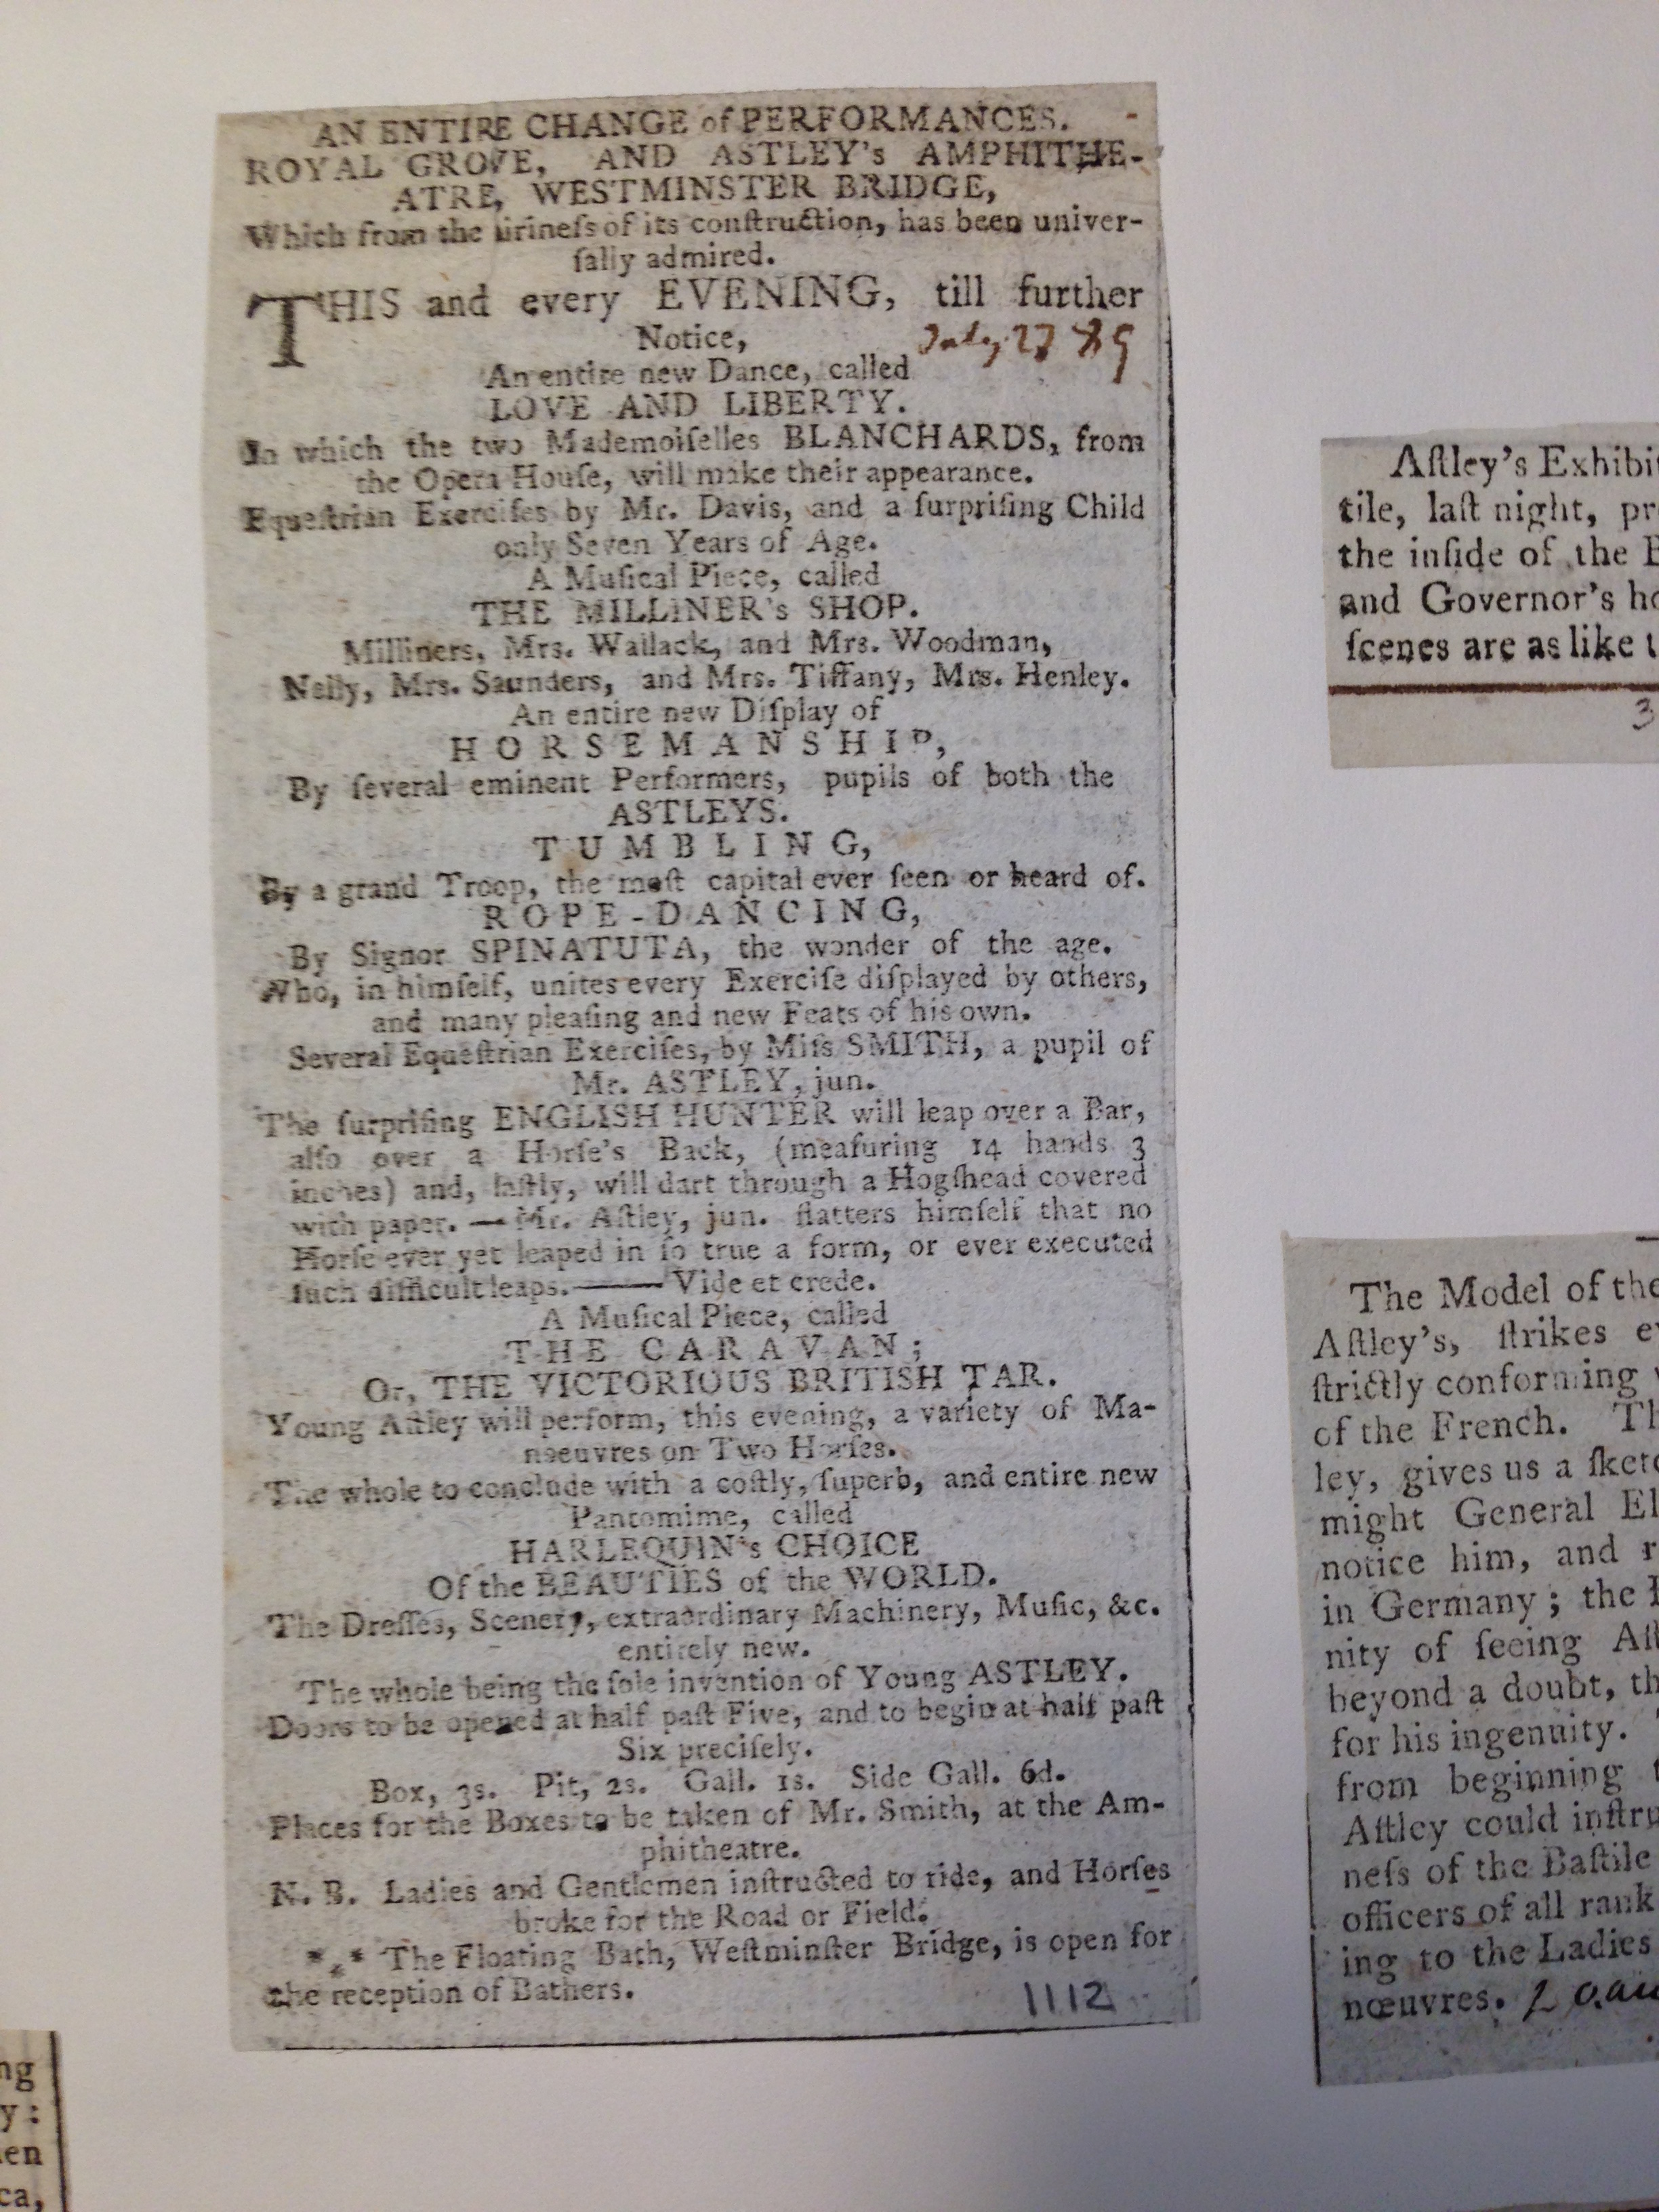 AN ENTIRE CHANGE of PERFORMANCES.
ROYAL GROVE, AND ASTLEY's AMPHITHE-
ATRE, WESTMINSTER BRIDGE,
Which from the airineſs of its conſtruction, has been univer-
ſally admired.
THIS and every EVENING, till further
Notice,
July 27 89
An entire new Dance, called
LOVE AND LIBERTY.
In which the two Mademoiſelles BLANCHARDS, from
the Opera Houſe, will make their appearance.
Equeſtrian Exerciſes by Mr. Davis, and a ſurpriſing Child
only Seven Years of Age.
A Muſical Piece, called
THE MILLINER's SHOP.
Milliners, Mrs. Wallack, and Mrs. Woodman,
Nelly, Mrs. Saunders, and Mrs. Tiffany, Mrs. Henley.
An entire new Diſplay of
HORSEMANSHIP,
By ſeveral eminent Performers, pupils of both the
ASTLEYS.
TUMBLING,
By a grand Troop, the moſt capital ever ſeen or heard of.
ROPE-DANCING,
By Signor SPINATUTA, the wonder of the age.
Who, in himſelf, unites every Exerciſe diſplayed by others,
and many pleaſing and new Feats of his own.
Several Equeſtrian Exerciſes, by Miſs SMITH, a pupil of
Mr. ASTLEY, jun.
The ſurpriſing ENGLISH HUNTER will leap over a Bar,
alſo over a Horſe's Back, (meaſuring 14 hands 3
inches) and, laſtly, will dart through a Hogſhead covered
with paper. — Mr. Aſtley, jun. flatters himſelf that no
Horſe ever yet leaped in ſo true a form, or ever executed
ſuch difficult leaps.—— Vide et crede.
A Muſical Piece, called
THE CARAVAN;
Or, THE VICTORIOUS BRITISH TAR.
Young Aſtley will perform, this evening, a variety of Ma-
nœuvres on Two Horſes.
The whole to conclude with a coſtly, ſuperb, and entire new
Pantomime, called
HARLEQUIN's CHOICE
Of the BEAUTIES of the WORLD.
The Dreſſes, Scenery, extraordinary Machinery, Muſic, &c.
entirely new.
The whole being the ſole invention of Young ASTLEY.
Doors to be opened at half paſt Five, and to begin at half paſt
Six preciſely.
Box, 3s. Pit, 2s. Gall. 1s. Side Gall. 6d.
Places for the Boxes to be taken of Mr. Smith, at the Am-
phitheatre.
N. B. Ladies and Gentlemen inſtructed to ride, and Horſes
broke for the Road or Field.
*⁎* The Floating Bath, Weſtminſter Bridge, is open for
the reception of Bathers.
1112
Aſtley's Exhibi
tile, laſt night, pr
the inſide of the B
and Governor's ho
ſcenes are as like t
3
The Model of the
Aſtley's, ſtrikes e
ſtrictly conforming
of the French. Th
ley, gives us a ſket
might General El
notice him, and r
in Germany; the
nity of ſeeing Aſt
beyond a doubt, th
for his ingenuity.
from beginning t
Aſtley could inſtru
neſs of the Baſtile
officers of all rank
ing to the Ladies
nœuvres.
ng
y:
en
ca,